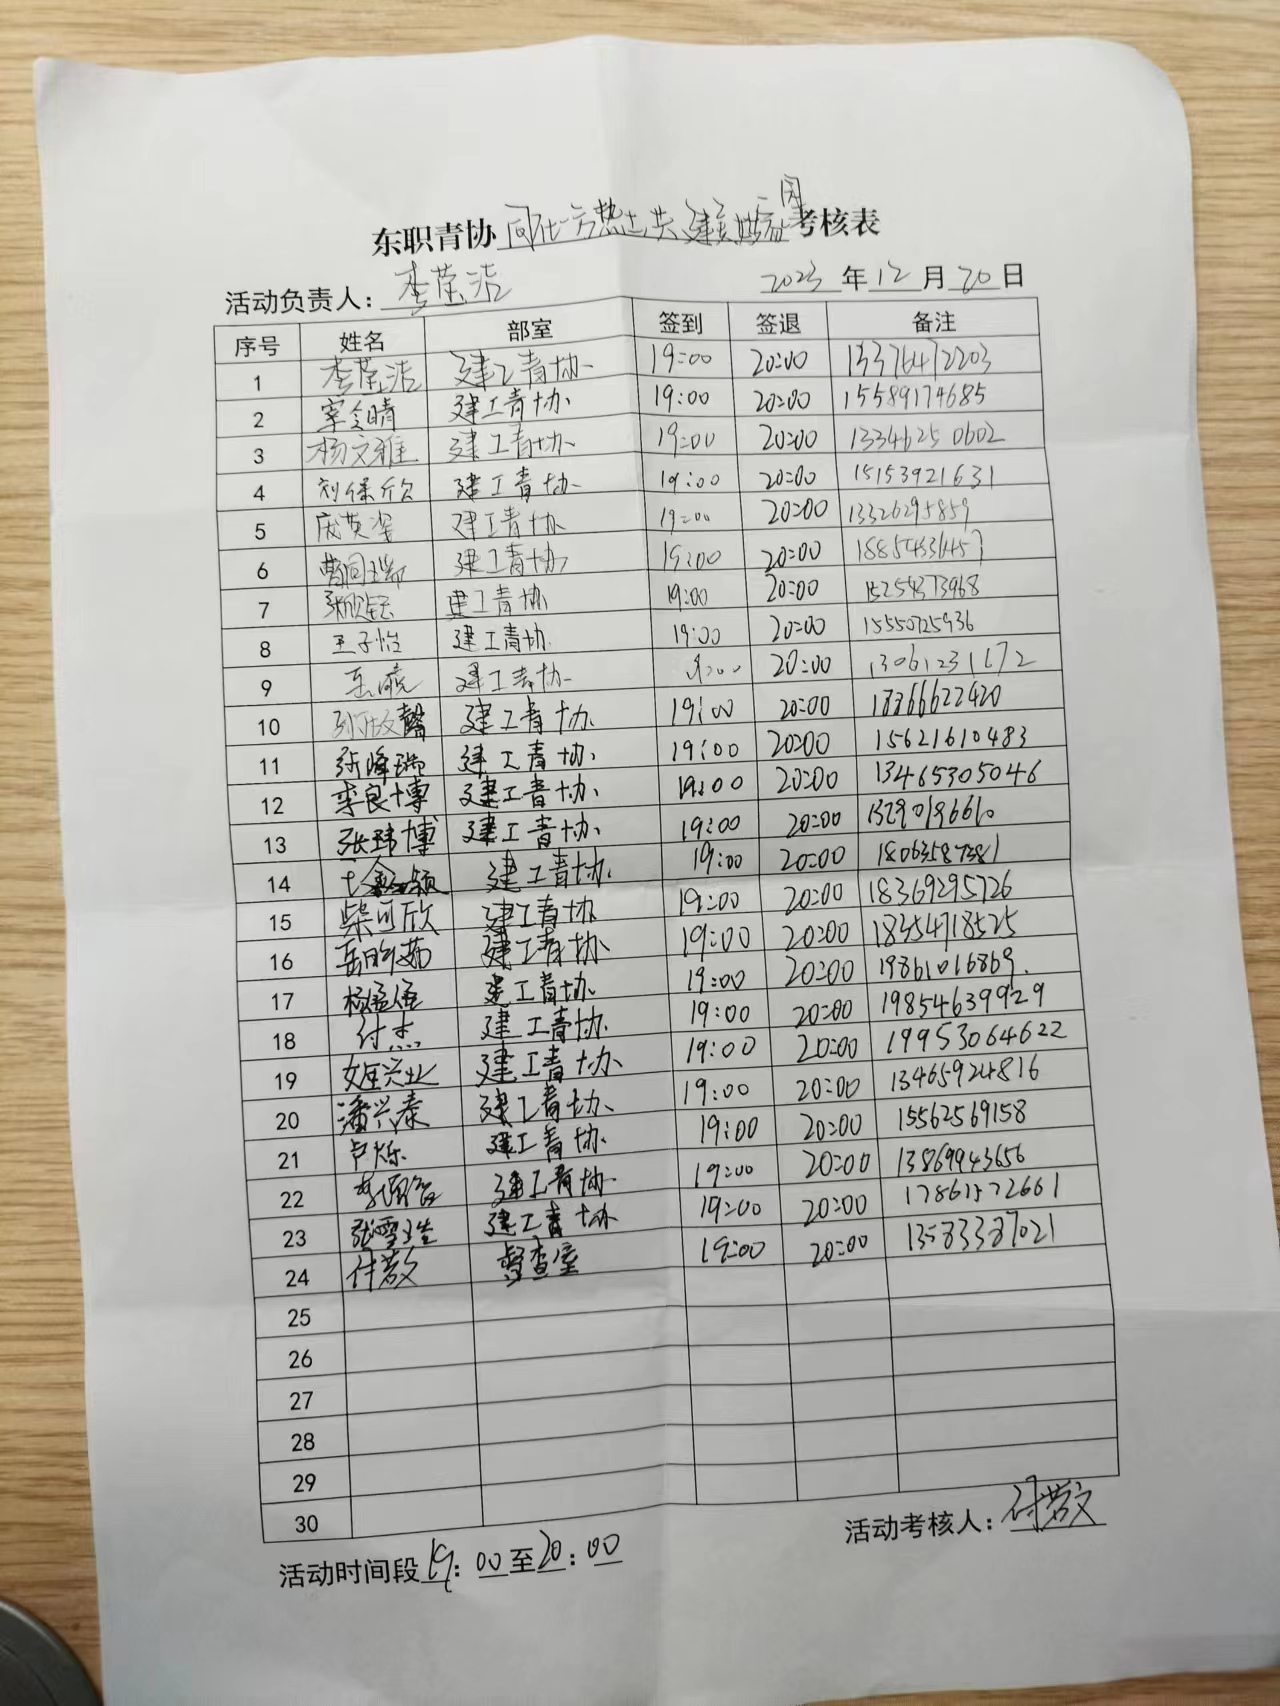 东职青协 考核表
活动负责人： 李荣洁 2023 年 12 月 20 日
序号 姓名 部室 签到 签退 备注
1 李荣洁 建工青协 19:00 20:00 15376472203
2 建工青协 19:00 20:00 15589174685
3 杨文雅 建工青协 19:00 20:00 13346250602
4 刘保欣 建工青协 19:00 20:00 15153921631
5 建工青协 19:00 20:00 13326295859
6 建工青协 19:00 20:00
7 建工青协 19:00 20:00 15254373968
8 王子怡 建工青协 19:00 20:00 15550725936
9 建工青协 20:00 13061231172
10 建工青协 19:00 20:00 18366622420
11 张峰瑞 建工青协 19:00 20:00 15621610483
12 李良博 建工青协 19:00 20:00 13465305046
13 张玮博 建工青协 19:00 20:00 13290196610
14 建工青协 19:00 20:00 18063587381
15 柴可欣 建工青协 19:00 20:00 18369295726
16 建工青协 19:00 20:00 18354718525
17 建工青协 19:00 20:00 19861016869
18 付杰 建工青协 19:00 20:00 19854639929
19 建工青协 19:00 20:00 19953064622
20 潘兴泰 建工青协 19:00 20:00 13465924816
21 卢烁 建工青协 19:00 20:00 15562569158
22 建工青协 19:00 20:00 13869943656
23 建工青协 19:00 20:00 17861572661
24 督查室 19:00 20:00 13583387021
25
26
27
28
29
30
活动考核人：
活动时间段 19：00 至 20：00